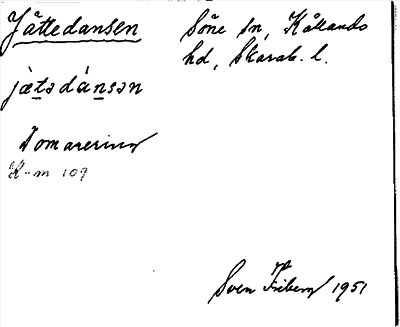 Jättedansen
Söne sn, Kållands
hd, Skarab. l.
jætədánsən
Domarering
K-m 109
Sven Friberg 1951